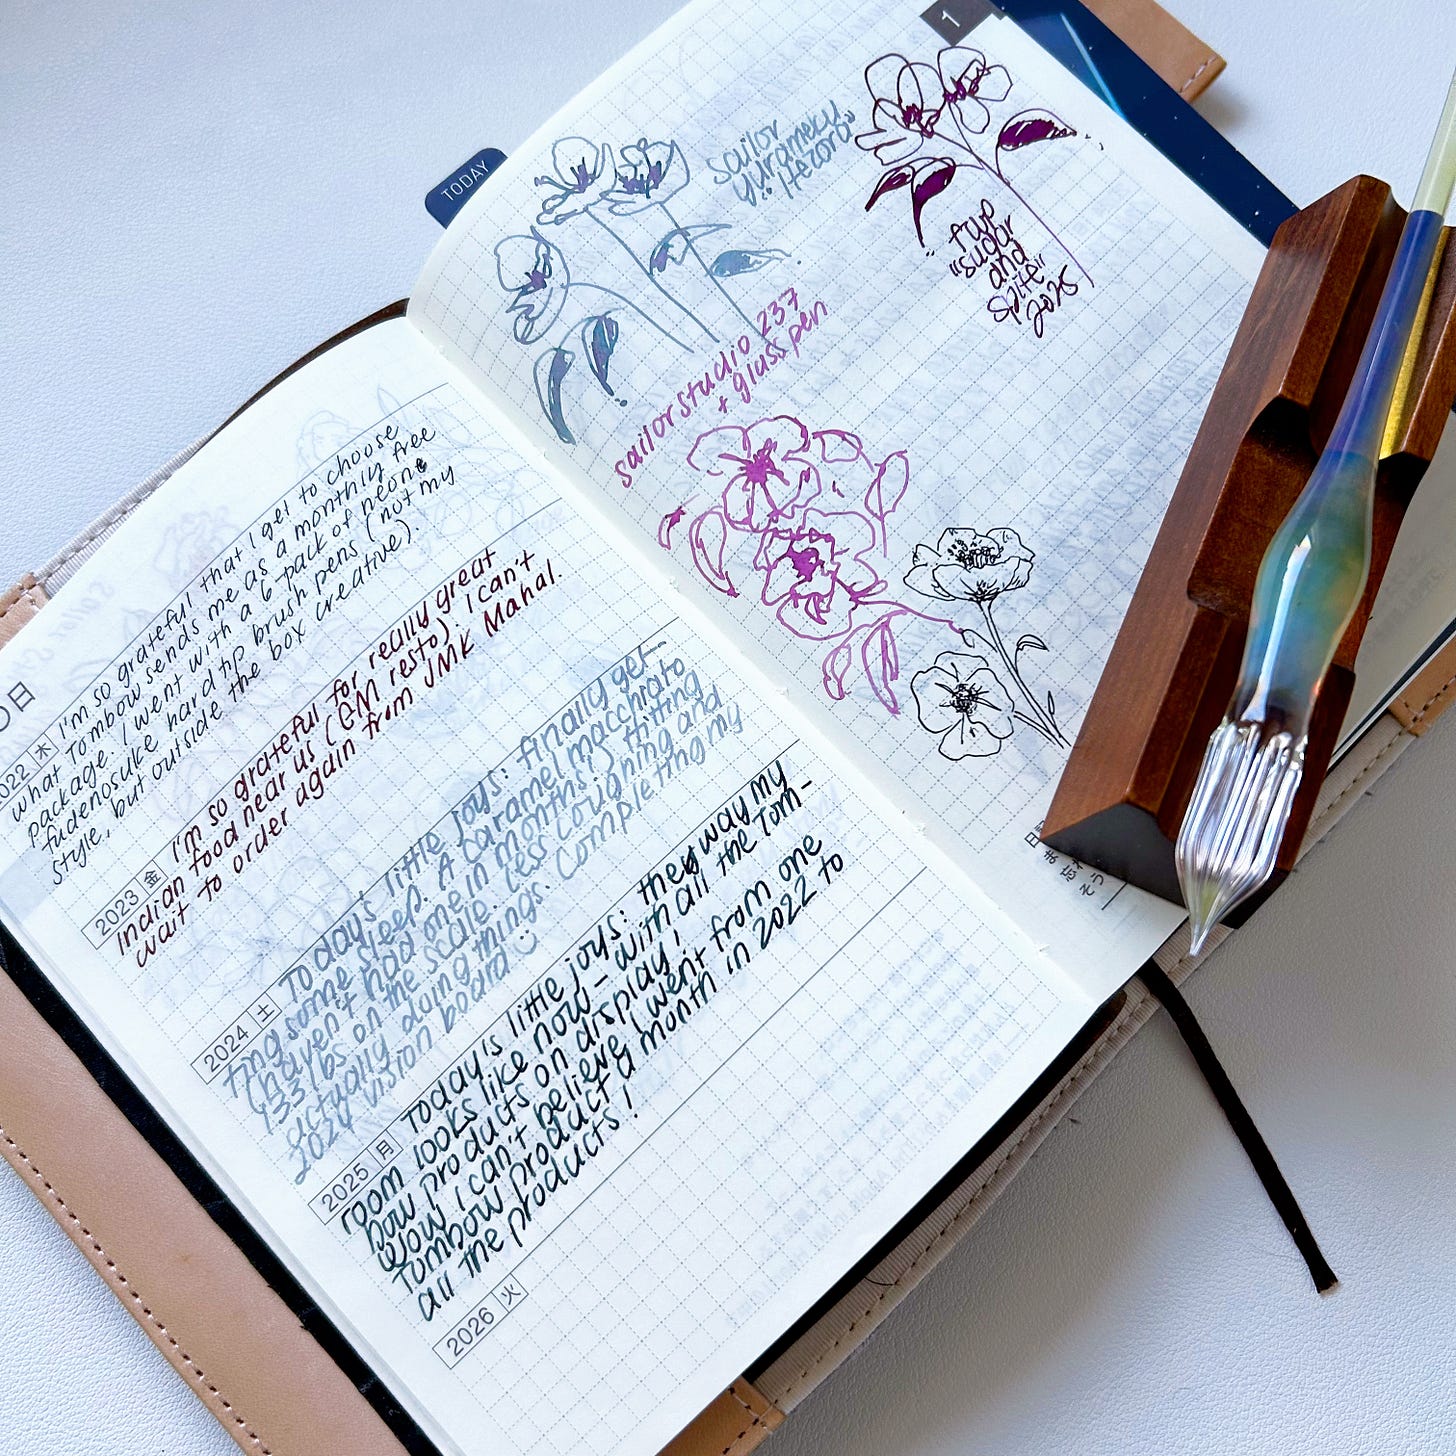 0日
2022 木 I'm so grateful that I get to choose
what Tombow sends me as a monthly free
package. I went with a 6-pack of neone
fudenosuke hard tip brush pens (not my
style, but outside the box creative).
2023 金 I'm so grateful for really great
Indian food near us (GM resto). I can't
wait to order again from JMK Mahal.
2024 土 Today's little joys: finally get-
ting some sleep. A caramel macchiato
(haven't had one in months!), hitting
133 lbs on the scale. Less cosigning and
actually doing things. Completing my
2024 vision board
2025 月 Today's little joys: the way my
room looks like now - with all the Tom-
bow products on display!
Wow, I can't believe I went from one
Tombow product a month in 2022 to
all the products!
2026 火
TODAY
1
sailor
yurameku
"Itezora"
fwp
"sugar
and
spite"
2025
sailor studio 237
+ glass pen